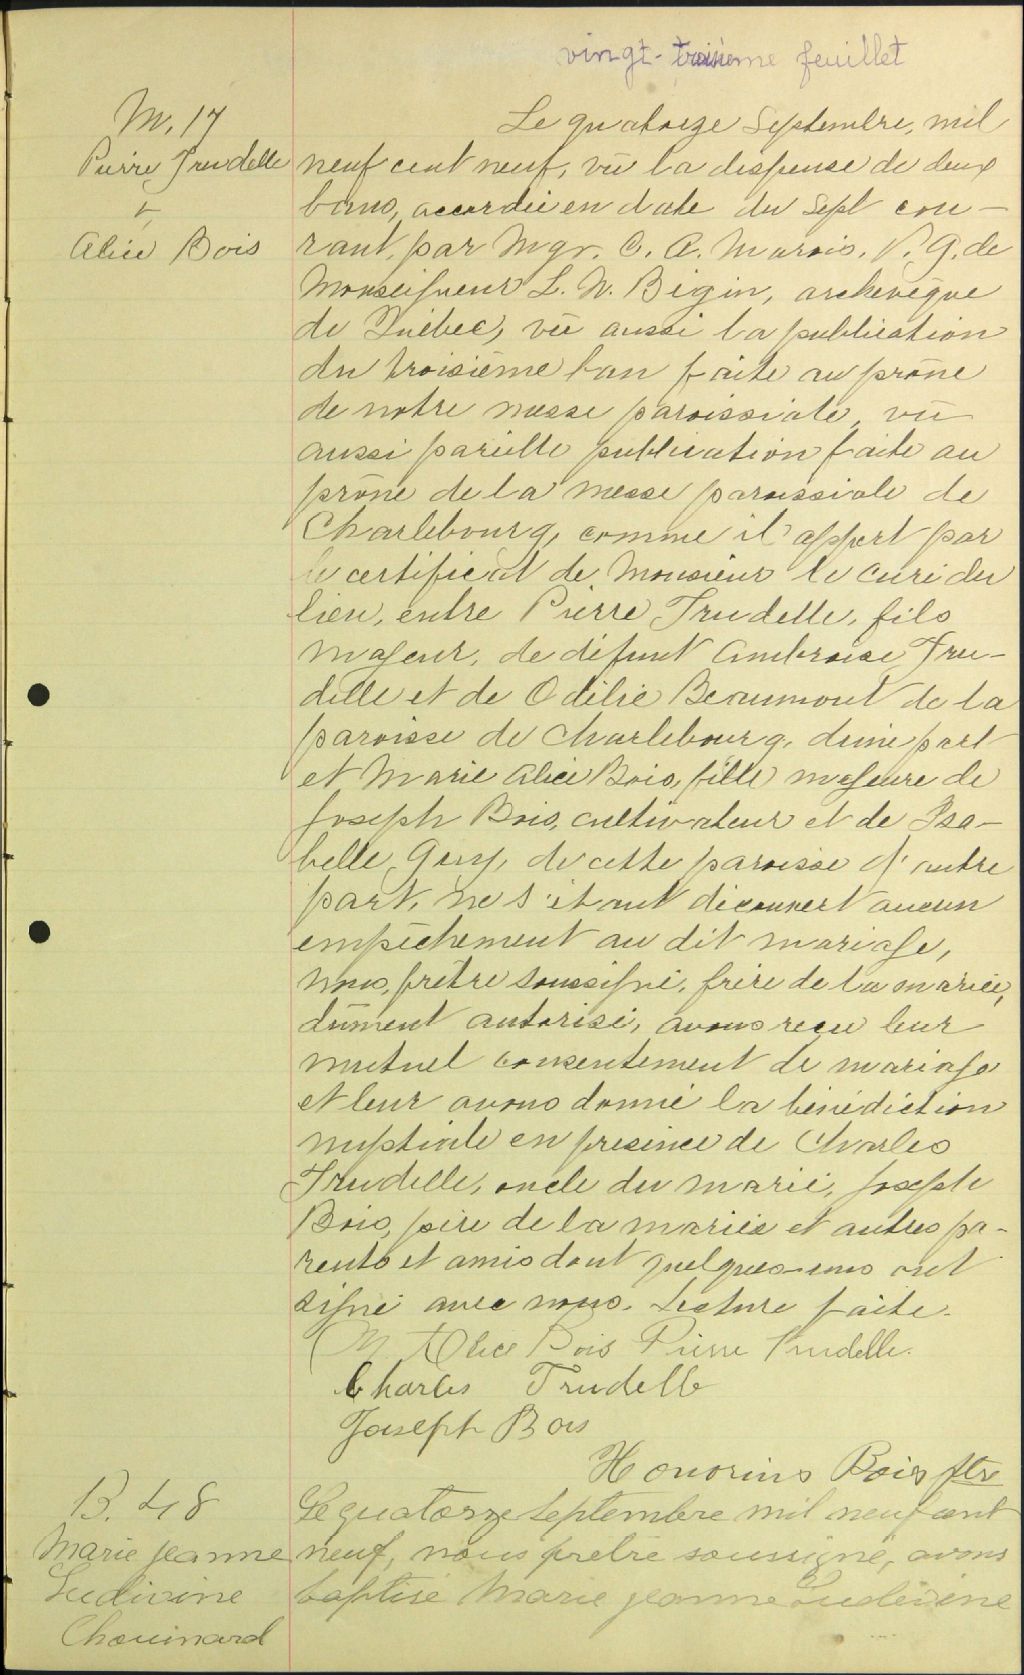 vingt-troisième feuillet
M. 17
Pierre Trudelle
&
Alice Bois
Le quatorze Septembre, mil
neuf cent neuf, vû la dispense de deux
bans, accordée en date du sept cou-
rant, par Mgr. C. A. Marois, V. G. de
Monseigneur L. N. Bégin, archevêque
de Québec, vû aussi la publication
du troisième ban faite au prône
de notre messe paroissiale, vû
aussi pareille publication faite au
prône de la messe paroissiale de
Charlebourg, comme il appert par
le certificat de Monsieur le curé du
lieu, entre Pierre Trudelle, fils
majeur, de défunt Ambroise Tru-
delle et de Odélie Beaumont de la
paroisse de Charlebourg, d'une part
et Marie Alice Bois, fille majeure de
Joseph Bois, cultivateur et de Isa-
belle Guy, de cette paroisse d'autre
part, ne s'étant découvert aucun
empêchement au dit mariage,
nous, prêtre soussigné, frère de la mariée,
dûment autorisé, avons reçu leur
mutuel consentement de mariage
et leur avons donné la bénédiction
nuptiale en présence de Charles
Trudelle, oncle du marié, Joseph
Bois, père de la mariée et autres pa-
rents et amis dont quelques-uns ont
signé avec nous. Lecture faite.
M. Alice Bois Pierre Trudelle.
Charles Trudelle
Joseph Bois
Honorius Bois ptre
B. 48
Marie Jeanne
Ludivine
Chouinard
Le quatorze Septembre mil neuf cent
neuf, nous prêtre soussigné, avons
baptisé Marie Jeanne Ludivine